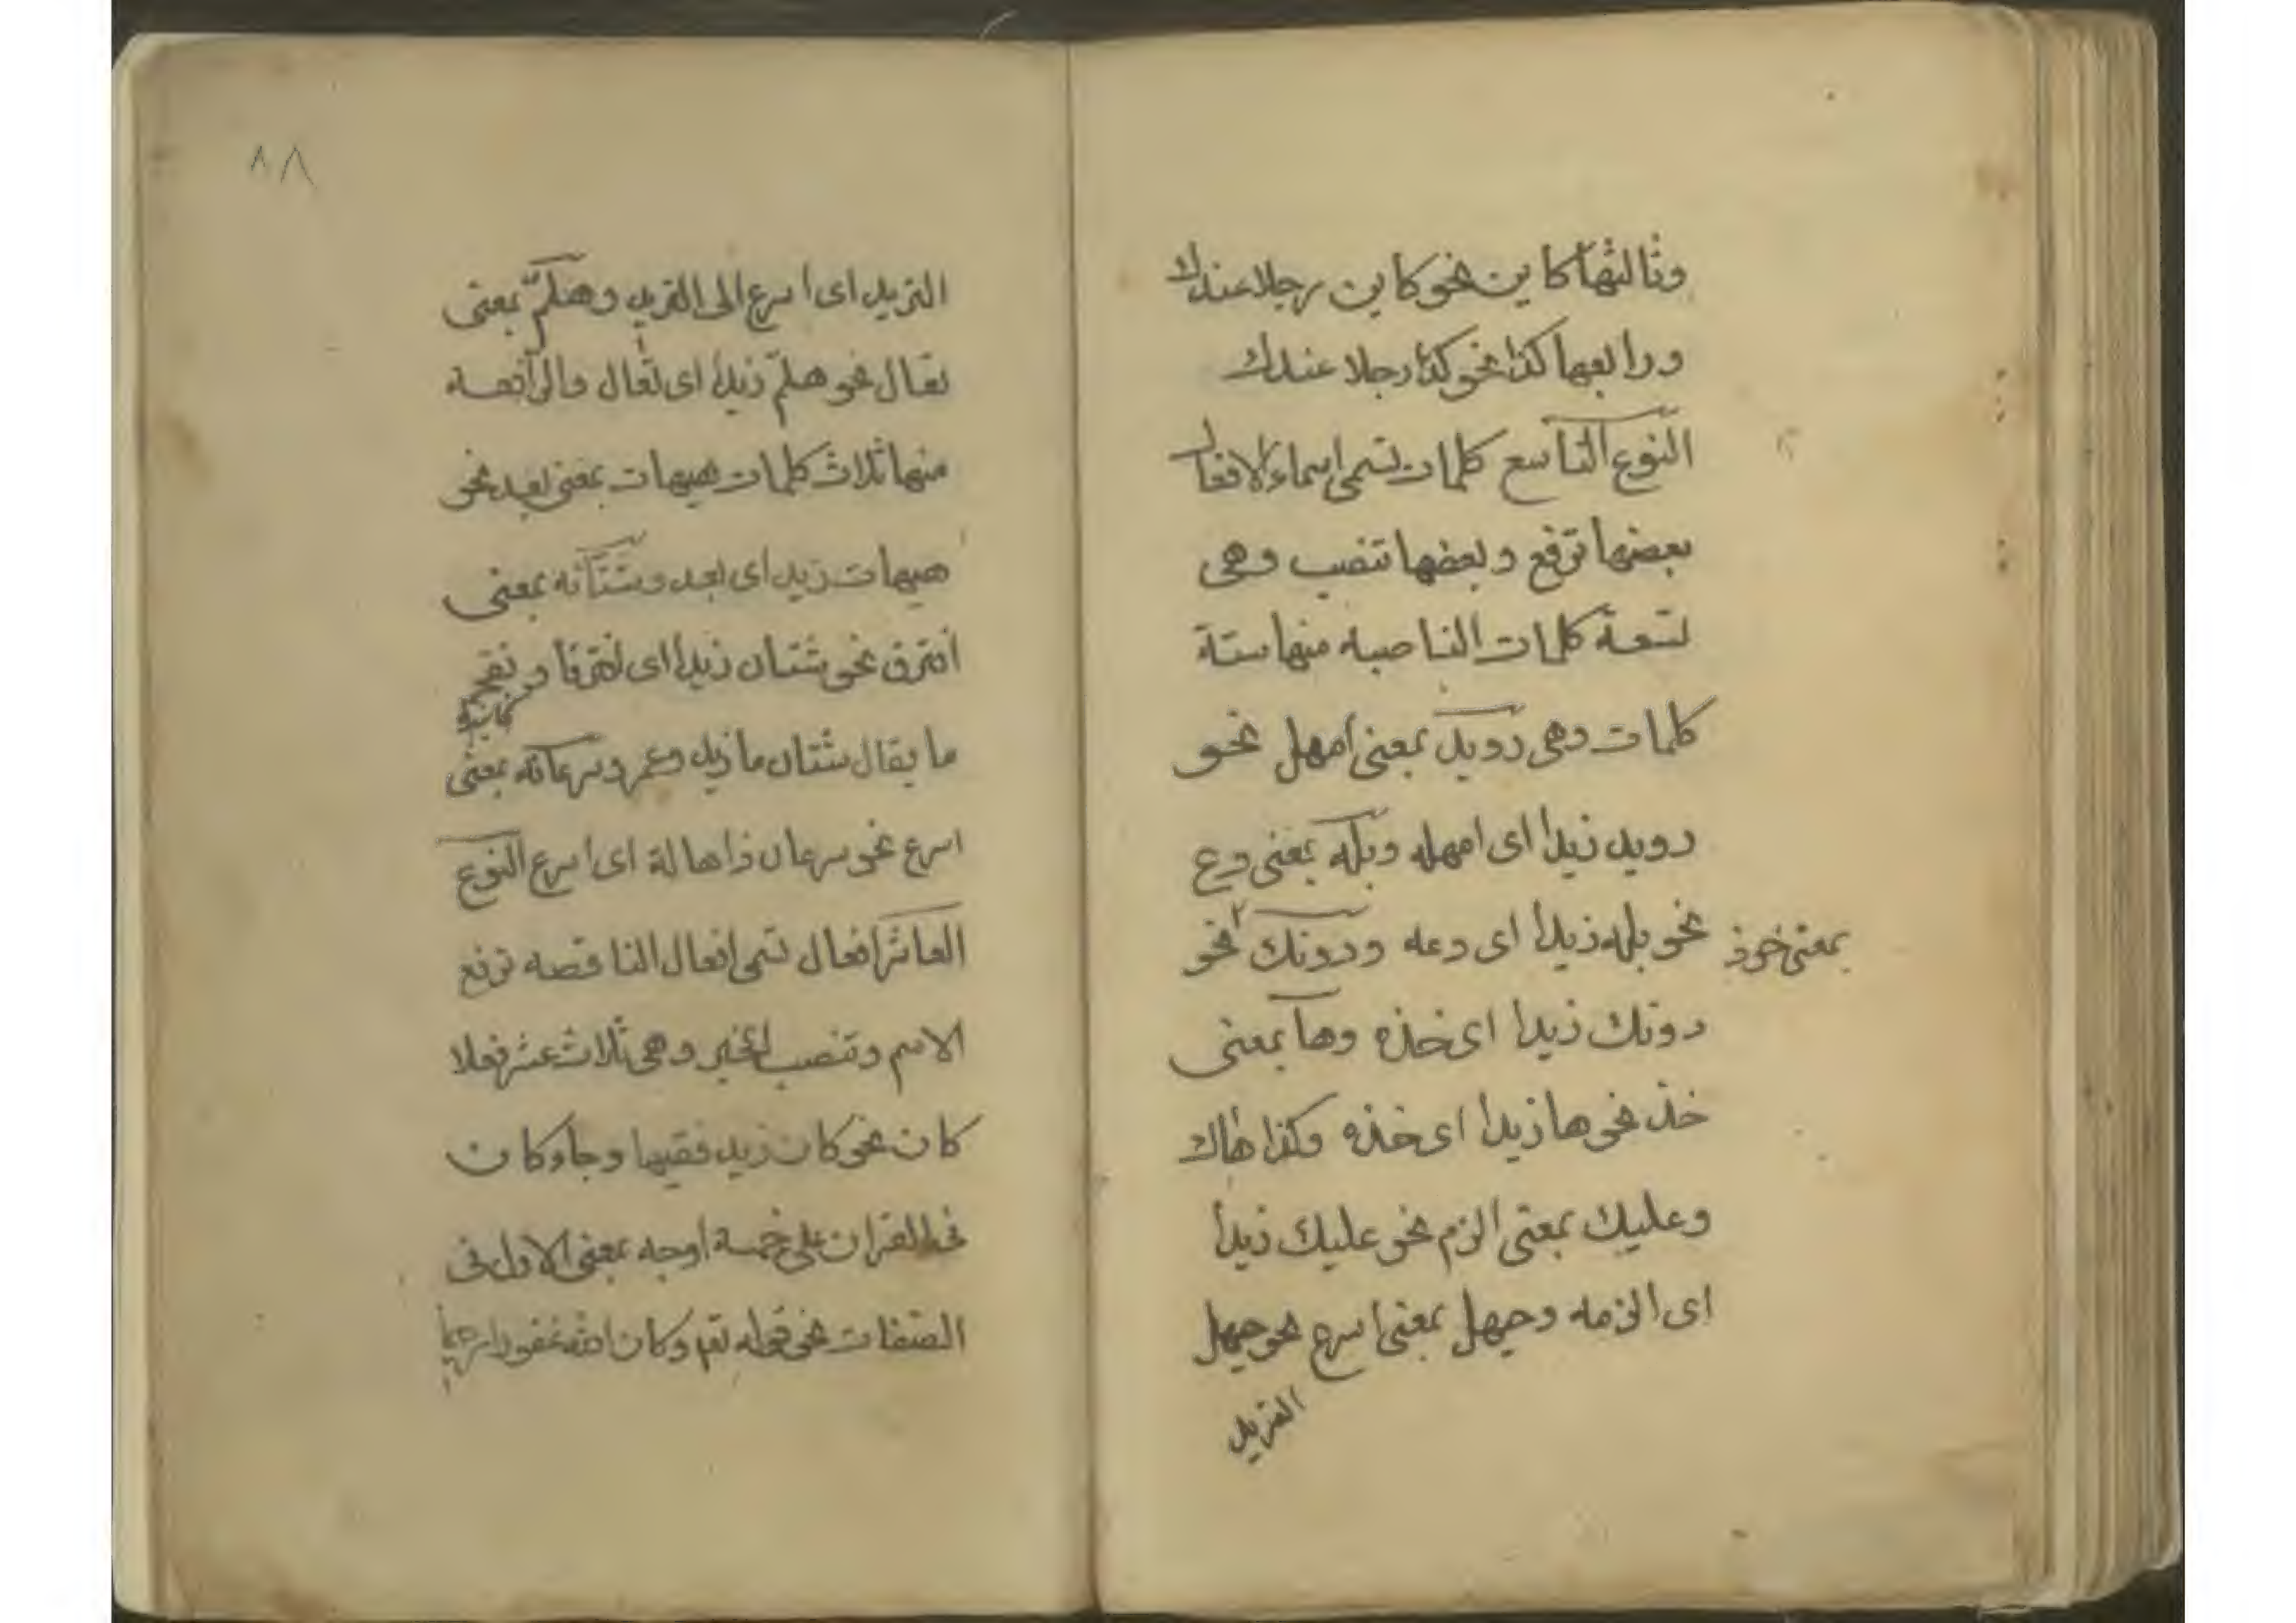 وثالثها كاين نحو كاين رجلا عندك
ورابعها كذا نحو كذا رجلا عندك
النوع التاسع كلمات تسمى اسماء الافعال
بعضها ترفع وبعضها تنصب وهى
تسعة كلمات الناصبه منها ستة
كلمات وهى رويد بمعنى امهل نحو
رويد زيدا اى امهله وبله بمعنى دع
نحو بله زيدا اى دعه ودونك نحو
بمعنى خوذ
دونك زيدا اى خذه وها بمعنى
خذ نحو ها زيدا اى خذه وكذا هاك
وعليك بمعنى الزم نحو عليك زيدا
اى الزمه وحيهل بمعنى اسرع نحو حيهل
الثريد
٨٨
الثريد اى اسرع الى الثريد وهلم بمعنى
تعال نحو هلم زيدا اى تعال والرافعه
منها ثلاث كلمات هيهات بمعنى بعد نحو
هيهات زيد اى بعد وشتانه بمعنى
افترق نحو شتان زيدا اى افترقا و
ما يقال شتان ما زيد وعمرو وسرعانه بمعنى
اسرع نحو سرعان ذا اهالة اى اسرع النوع
العاشر افعال تسمى افعال الناقصه ترفع
الاسم وتنصب الخبر وهى ثلاث عشر فعلا
كان نحو كان زيد فقيها وجاء وكان
فى القران على خمسة اوجه بمعنى الاول فى
الصفات نحو قوله تعم وكان الله غفورا رحيما